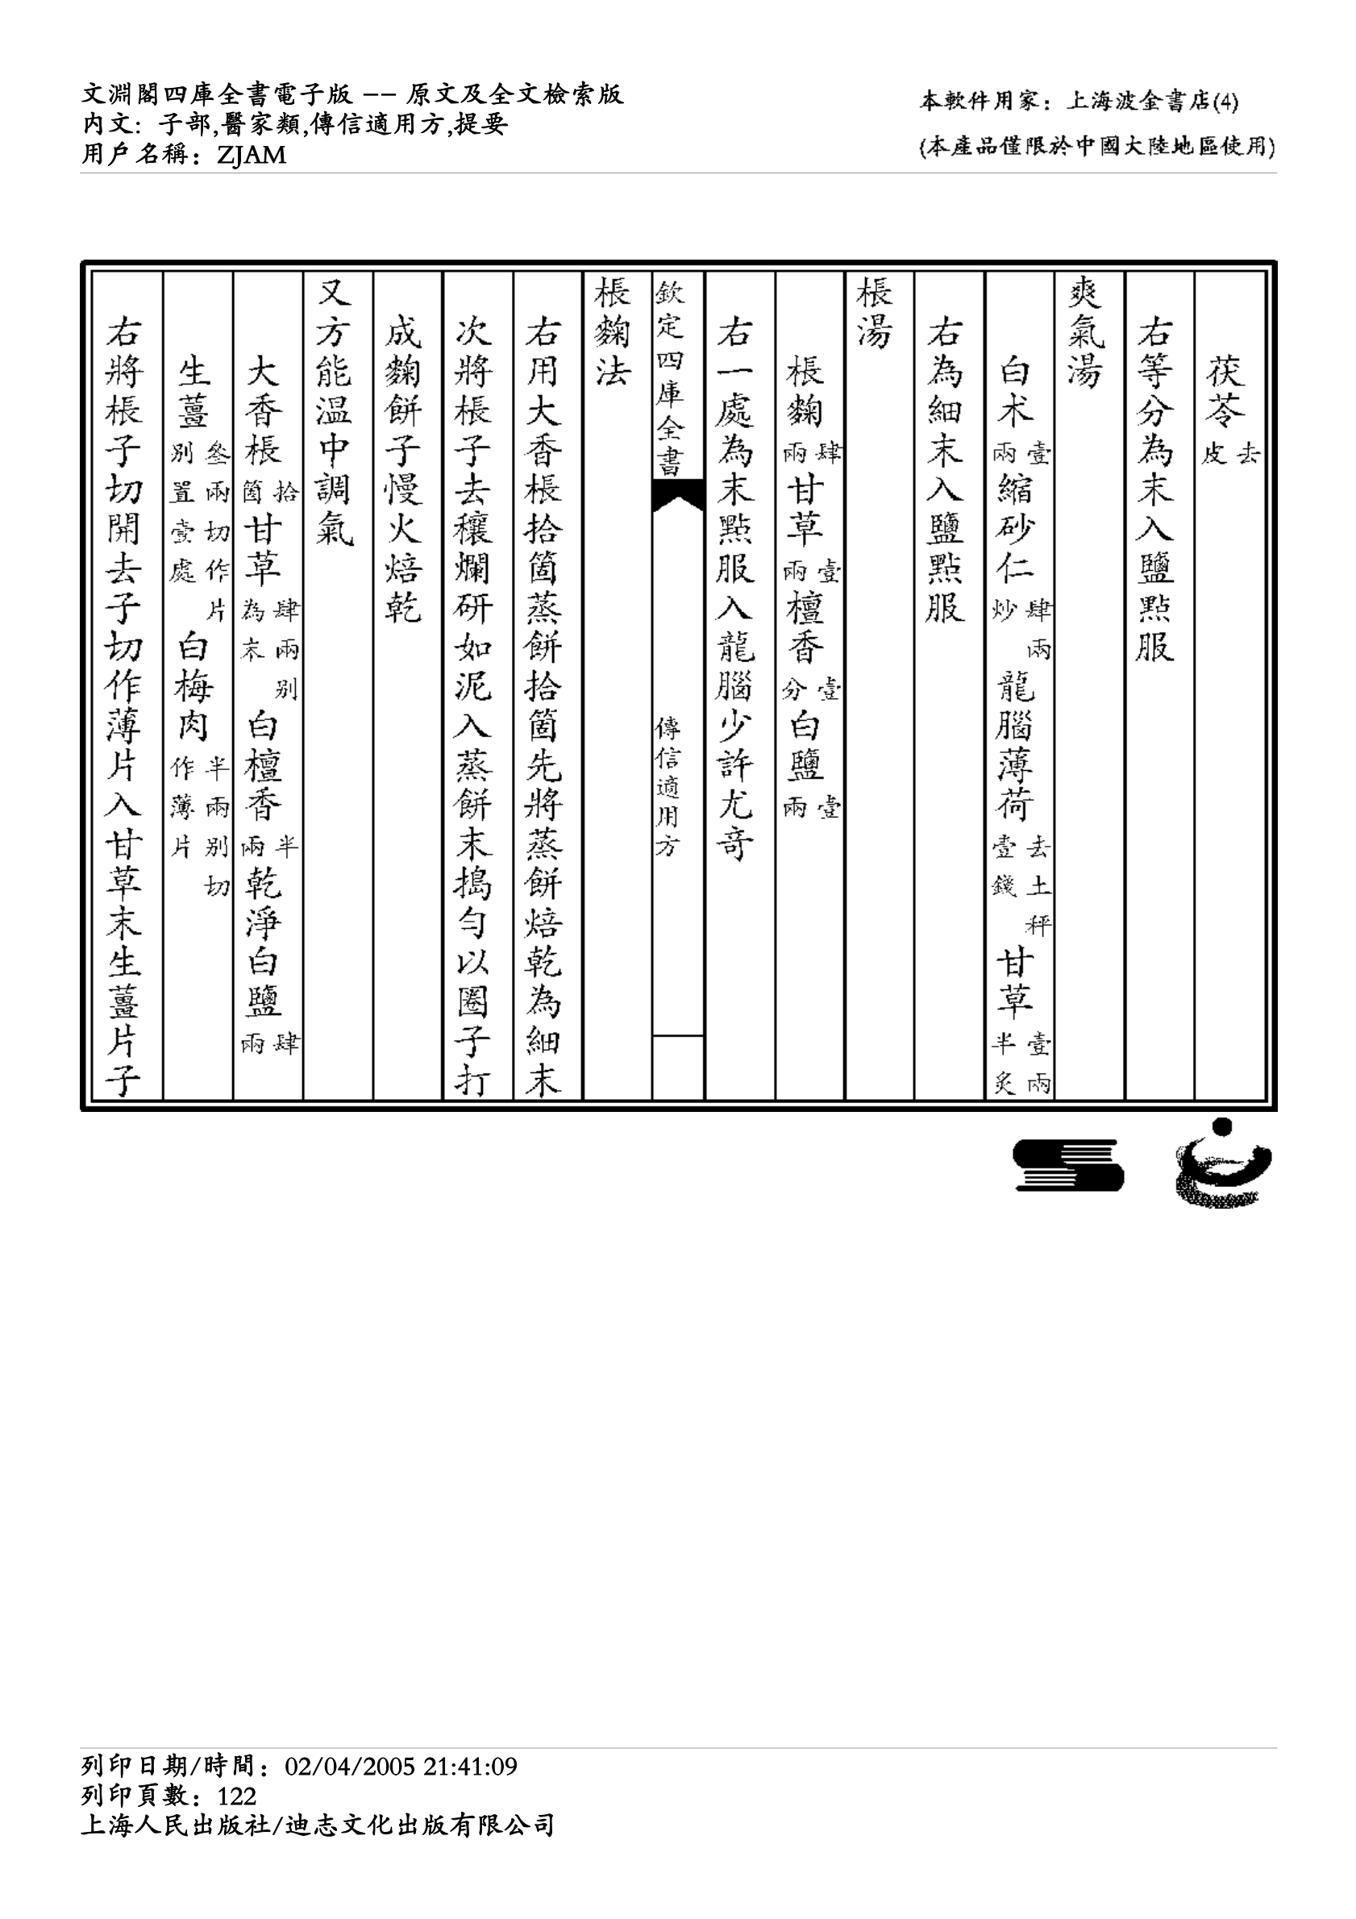 文淵閣四庫全書電子版 -- 原文及全文檢索版
内文: 子部,醫家類,傳信適用方,提要
用戶名稱: ZJAM
本軟件用家: 上海波金書店(4)
(本產品僅限於中國大陸地區使用)
茯苓去皮
右等分為末入鹽㸃服
爽氣湯
白术壹兩縮砂仁肆兩炒龍腦薄荷去土秤壹錢甘草壹兩半炙
右為細末入鹽㸃服
棖湯
棖麴肆兩甘草壹兩檀香壹分白鹽壹兩
右一處為末㸃服入龍腦少許尤竒
欽定四庫全書
傳信適用方
棖麴法
右用大香棖拾箇蒸餅拾箇先將蒸餅焙乾為細末
次將棖子去穰爛研如泥入蒸餅末搗勻以圈子打
成麴餅子慢火焙乾
又方能温中調氣
大香棖拾箇甘草肆兩别為末白檀香半兩乾淨白鹽肆兩
生薑叄兩切作片别置壹處白梅肉半兩别切作薄片
右將棖子切開去子切作薄片入甘草末生薑片子
列印日期/時間: 02/04/2005 21:41:09
列印頁數: 122
上海人民出版社/迪志文化出版有限公司